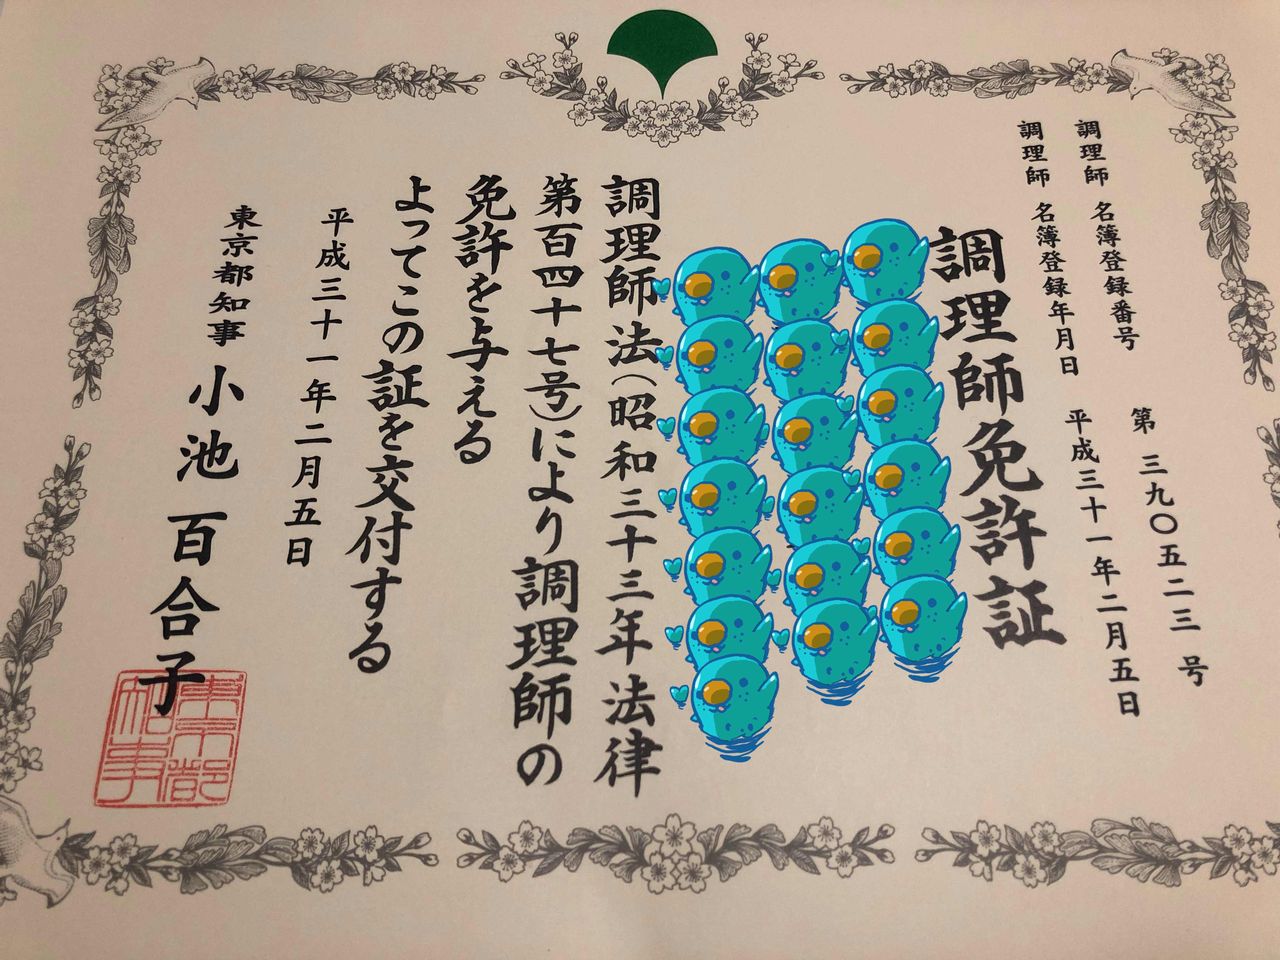 調理師名簿登録番号 第三九〇五二三号
調理師名簿登録年月日 平成三十一年二月五日
調理師免許証
調理師法(昭和三十三年法律
第百四十七号)により調理師の
免許を与える
よってこの証を交付する
平成三十一年二月五日
東京都知事 小池百合子